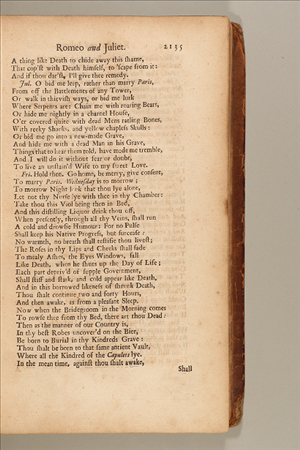 Romeo and Juliet. 2135
A thing like Death to chide away this shame,
That cop'st with Death himself, to 'scape from it:
And if thou dar'st, I'll give thee remedy.
Jul. O bid me leap, rather than marry Paris,
From off the Battlements of any Tower,
Or walk in thievish ways, or bid me lurk
Where Serpents are: Chain me with roaring Bears,
Or hide me nightly in a charnel House,
O'er covered quite with dead Mens ratling Bones,
With reeky Shanks, and yellow chapless Skulls:
Or bid me go into a new-made Grave,
And hide me with a dead Man in his Grave,
Things that to hear them told, have made me tremble,
And I will do it without fear or doubt,
To live an unstain'd Wife to my sweet Love.
Fri. Hold then. Go home, be merry, give consent,
To marry Paris. Wednesday is to morrow;
To morrow Night look that thou lye alone,
Let not thy Nurse lye with thee in thy Chamber:
Take thou this Viol being then in Bed,
And this distilling Liquor drink thou off,
When presently, through all thy Veins, shall run
A cold and drowsie Humour: For no Pulse
Shall keep his Native Progress, but surcease:
No warmth, no breath shall testifie thou livest;
The Roses in thy Lips and Cheeks shall fade
To mealy Ashes, the Eyes Windows, fall
Like Death, when he shuts up the Day of Life;
Each part depriv'd of supple Government,
Shall stiff and stark, and cold appear like Death,
And in this borrowed likeness of shrunk Death,
Thou shalt continue two and forty Hours,
And then awake, as from a pleasant Sleep.
Now when the Bridegroom in the Morning comes
To rowse thee from thy Bed, there art thou Dead:
Then as the manner of our Country is,
In thy best Robes uncover'd on the Bier,
Be born to Burial in thy Kindreds Grave:
Thou shalt be born to that same antient Vault,
Where all the Kindred of the Capulets lye.
In the mean time, against thou shalt awake,
Shall